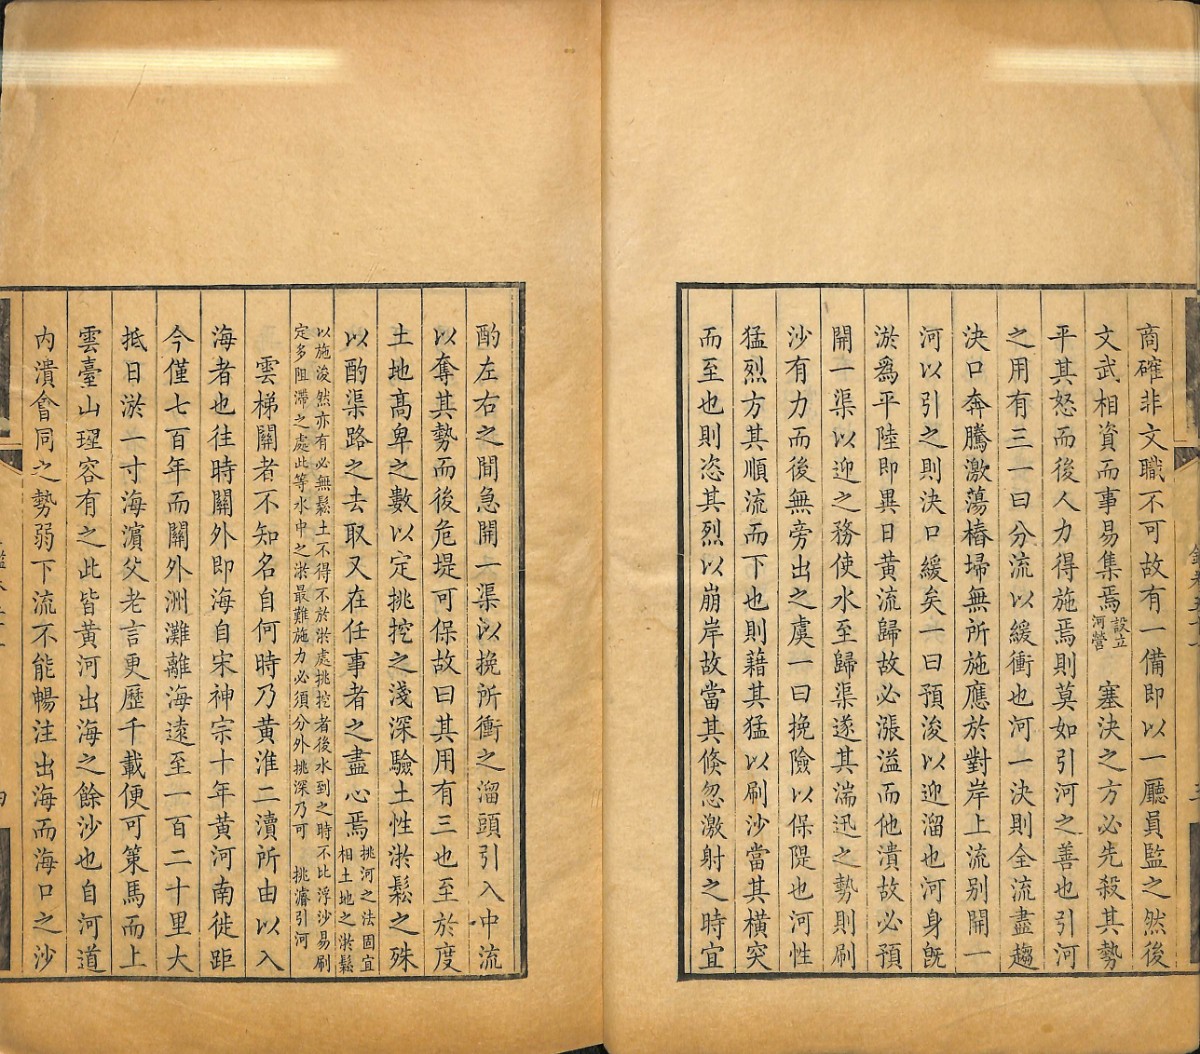 商確非文職不可故有一備即以一廳員監之然後
文武相資而事易集焉設立河營　塞決之方必先殺其勢
平其怒而後人力得施焉則莫如引河之善也引河
之用有三一曰分流以緩衝也河一決則全流盡趨
決口奔騰激蕩樁埽無所施應於對岸上流别開一
河以引之則決口緩矣一曰預浚以迎溜也河身旣
淤爲平陸即異日黄流歸故必漲溢而他潰故必預
開一渠以迎之務使水至歸渠遂其湍迅之勢則刷
沙有力而後無旁出之虞一曰挽險以保隄也河性
猛烈方其順流而下也則藉其猛以刷沙當其橫突
而至也則恣其烈以崩岸故當其倏忽激射之時宜
酌左右之間急開一渠以挽所衝之溜頭引入中流
以奪其勢而後危堤可保故曰其用有三也至於度
土地高卑之數以定挑挖之淺深驗土性淤鬆之殊
以酌渠路之去取又在任事者之盡心焉挑河之法固宜相土地之淤鬆
以施浚然亦有必無鬆土不得不於淤處挑挖者後水到之時不比浮沙易刷
定多阻滯之處此等水中之淤最難施力必須分外挑深乃可　挑濬引河
雲梯關者不知名自何時乃黄淮二瀆所由以入
海者也往時關外即海自宋神宗十年黄河南徙距
今僅七百年而關外洲灘離海遠至一百二十里大
抵日淤一寸海濵父老言更歷千載便可策馬而上
雲臺山理容有之此皆黄河出海之餘沙也自河道
内潰會同之勢弱下流不能暢注出海而海口之沙